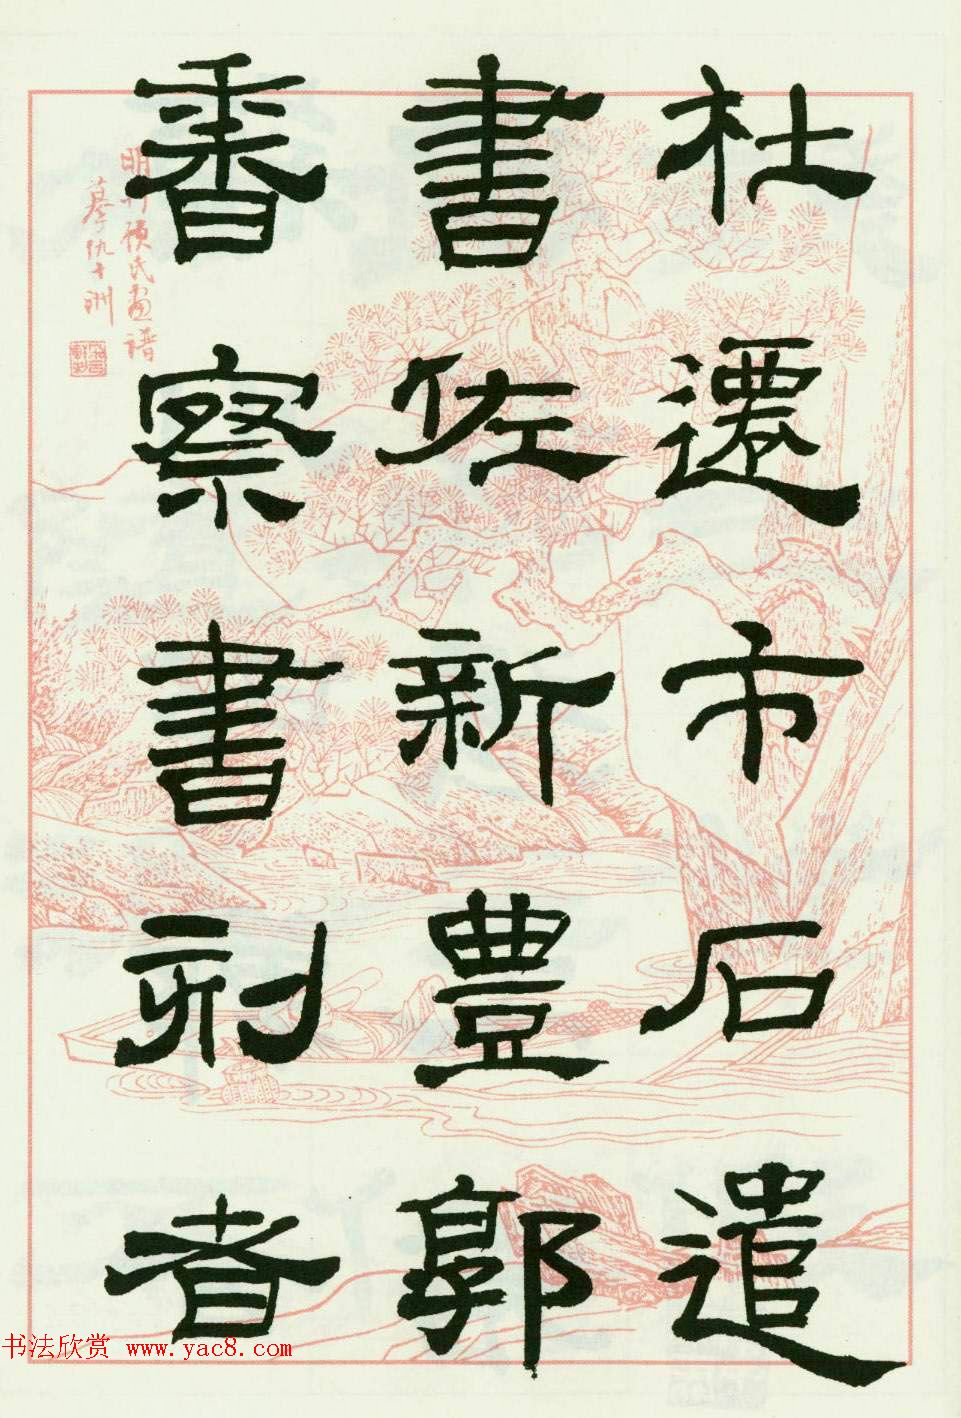 杜遷市石遣
書佐新豊郭
香察書刻者
明刊顧氏画譜
摹仇十洲
书法欣赏 www.yac8.com